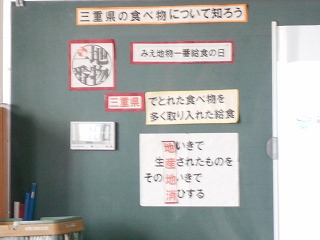 三重県の食べ物について知ろう
地物
みえ地物一番給食の日
三重県でとれた食べ物を
多く取り入れた給食
地いきで
生産されたものを
その地いきで
消ひする